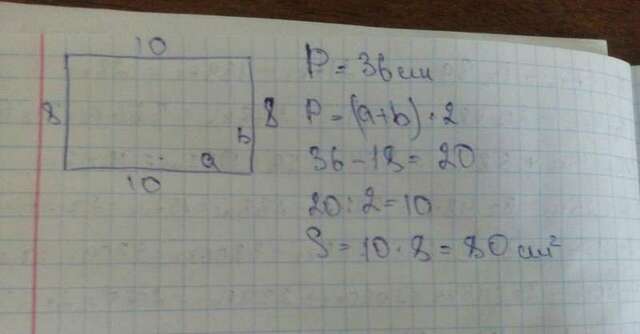 10
P = 36 см
8
8
P = (a+b) · 2
b
36 - 18 = 20
a
10
20 : 2 = 10
S = 10 · 8 = 80 см²